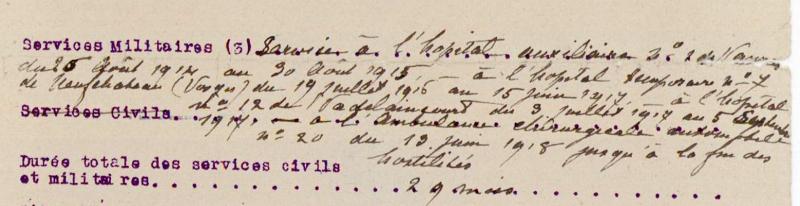 Services Militaires (3) Services à l'hôpital auxiliaire n° 2 de Vannes
du 25 Août 1914 au 30 Août 1915. — à l'hôpital temporaire n° 7
de Neufchateau (Vosges) du 19 juillet 1916 au 15 juin 1917. à l'hôpital
Services Civils. n° 12 de Vadelaincourt du 3 juillet 1917 au 5 Septembre
1917. — à l'Ambulance chirurgicale automobile
n° 20 du 13 juin 1918 jusqu'à la fin des
hostilités
Durée totale des services civils
et militaires. . . . . . . . 29 mois. . . . . . . . . .